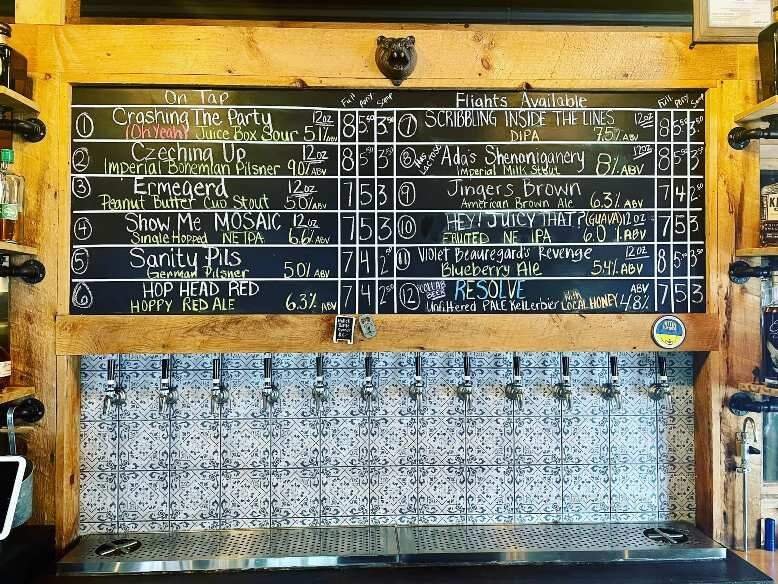 On Tap Full Pony Samp
1 Crashing The Party 12oz 8 5.50 3.50
(Oh Yeah) Juice Box Sour 5.1% ABV
2 Czeching Up 12oz 8 5 3.50
Imperial Bohemian Pilsner 9.0% ABV
3 Ermegerd 12oz 7 5 3
Peanut Butter Cup Stout 5.0% ABV
4 Show Me MOSAIC 12oz 7 5 3
Single Hopped NE IPA 6.6% ABV
5 Sanity Pils 7 4 2.50
German Pilsner 5.0% ABV
6 HOP HEAD RED 7 4 2.50
HOPPY RED ALE 6.3% ABV
Flights Available Full Pony Samp
7 SCRIBBLING INSIDE THE LINES 12oz 8 5.50 3.50
DIPA 7.5% ABV
8 Has Lactose Ada's Shenaniganery 12oz 8 5 3
Imperial Milk Stout 8% ABV
9 Jingers Brown 7 4 2.50
American Brown Ale 6.3% ABV
10 HEY! JUICY THAT? (GUAVA) 12oz 7 5 3
FRUITED NE IPA 6.0% ABV
11 Violet Beauregard's Revenge 12oz 8 5 3
Blueberry Ale 5.4% ABV
12 COLLAB BEER RESOLVE ABV 7 5 3
Unfiltered PALE Kellerbier With LOCAL HONEY 4.8%